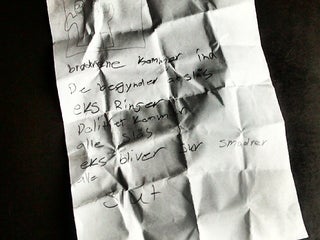 brødrene kommer ind
De begynder at slås
eks Ringer
Politiet kommer
alle slås
eks bliver sur smadrer
alle
slut